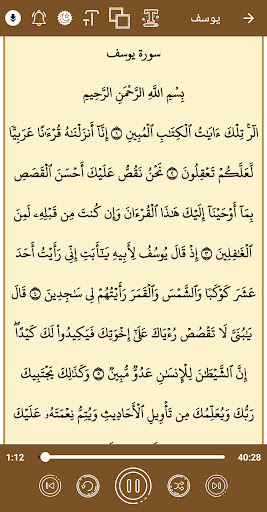 يوسف
سورة يوسف
بِسْمِ اللَّهِ الرَّحْمَٰنِ الرَّحِيمِ
الٓرۚ تِلْكَ ءَايَٰتُ ٱلْكِتَٰبِ ٱلْمُبِينِ ١ إِنَّآ أَنزَلْنَٰهُ قُرْءَٰنًا عَرَبِيًّا
لَّعَلَّكُمْ تَعْقِلُونَ ٢ نَحْنُ نَقُصُّ عَلَيْكَ أَحْسَنَ ٱلْقَصَصِ
بِمَآ أَوْحَيْنَآ إِلَيْكَ هَٰذَا ٱلْقُرْءَانَ وَإِن كُنتَ مِن قَبْلِهِۦ لَمِنَ
ٱلْغَٰفِلِينَ ٣ إِذْ قَالَ يُوسُفُ لِأَبِيهِ يَٰٓأَبَتِ إِنِّي رَأَيْتُ أَحَدَ
عَشَرَ كَوْكَبًا وَٱلشَّمْسَ وَٱلْقَمَرَ رَأَيْتُهُمْ لِي سَٰجِدِينَ ٤ قَالَ
يَٰبُنَيَّ لَا تَقْصُصْ رُءْيَاكَ عَلَىٰٓ إِخْوَتِكَ فَيَكِيدُوا۟ لَكَ كَيْدًاۖ
إِنَّ ٱلشَّيْطَٰنَ لِلْإِنسَٰنِ عَدُوٌّ مُّبِينٌ ٥ وَكَذَٰلِكَ يَجْتَبِيكَ
رَبُّكَ وَيُعَلِّمُكَ مِن تَأْوِيلِ ٱلْأَحَادِيثِ وَيُتِمُّ نِعْمَتَهُۥ عَلَيْكَ
1:12 40:28